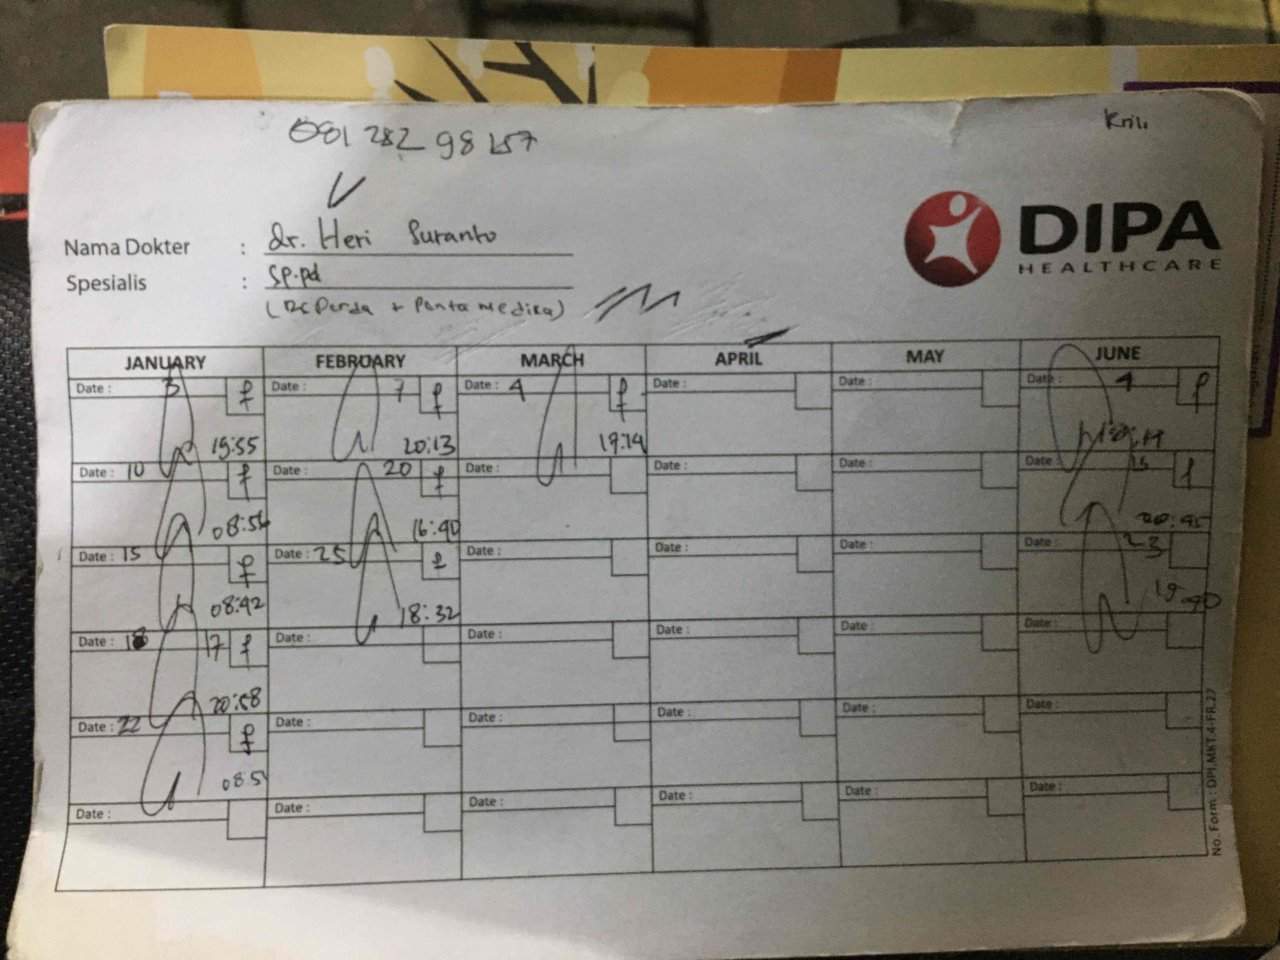 Krili
081 282 98 157
DIPA
HEALTHCARE
Nama Dokter : dr. Heri Suranto
Spesialis : Sp.pd
Panta Medika)
JANUARY FEBRUARY MARCH APRIL MAY JUNE
Date : 3 f Date : 7 f Date : 4 f Date : Date : Date : 4 f
19:55 20:13 19:14
Date : 10 f Date : 20 f Date : Date : Date : Date : 15 f
08:56 16:40 20:45
Date : 15 f Date : 25 f Date : Date : Date : Date : 23
08:42 18:32 19:40
Date : 17 f Date : Date : Date : Date : Date :
20:58
Date : 22 f Date : Date : Date : Date : Date :
08:5
Date : Date : Date : Date : Date : Date :
No. Form : DPI.MKT.4-FR.27